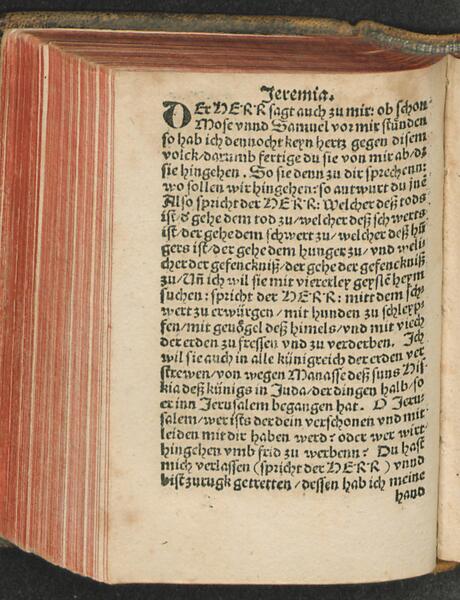 Jeremia.
DEr HERR sagt auch zu mir: ob schon
Mose vnnd Samuel vor mir stünden
so hab ich dennocht keyn hertz gegen disem
volck/darumb fertige du sie von mir ab/dz
sie hingehen. So sie denn zu dir sprechenn:
wo sollen wir hingehen: so antwurt du jnē
Also spricht der HERR: Welcher deß tods
ist/d gehe dem tod zu/welcher deß schwerts
ist/der gehe dem schwert zu/welcher deß hū
gers ist/der gehe dem hunger zu/vnd weli
cher der gefencknniß/der gehe der gefenckniß
zu/Vñ ich wil sie mit viererley geyslē heym
suchen: spricht der HERR: mitt dem sch
wert zu erwürgen/mit hunden zu schleyp
fen/mit gevögel deß himels/vnd mit viech
der erden zu fressen vnd zu verderben. Ich
wil sie auch in alle künigreich der erden ver
strewen/von wegen Manasse deß suns His
kia deß künigs in Juda/der dingen halb/so
er inn Jerusalem begangen hat. O Jeru
salem/wer ists der dein verschonen vnd mit
leiden mit dir haben werd? oder wer wirt
hingehen vmb frid zu werbenn? Du hast
mich verlassen (spricht der HERR) vnnd
bist zurugk getretten/dessen hab ich meine
hand